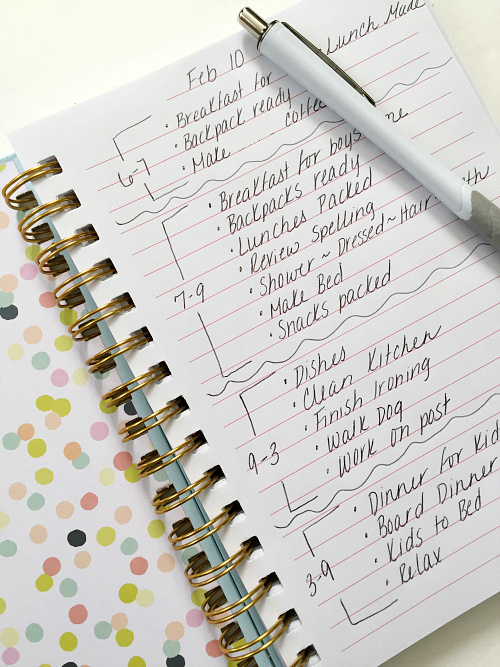 Feb 10
6-7
• Breakfast for Lunch Made
• Backpack ready
• Make coffee
7-9
• Breakfast for boys
• Backpacks ready
• Lunches Packed
• Review Spelling
• Shower ~ Dressed ~ Hair
• Make Bed
• Snacks packed
9-3
• Dishes
• Clean Kitchen
• Finish Ironing
• Walk Dog
• Work on post
3-9
• Dinner for Kids
• Board Dinner
• Kids to Bed
• Relax